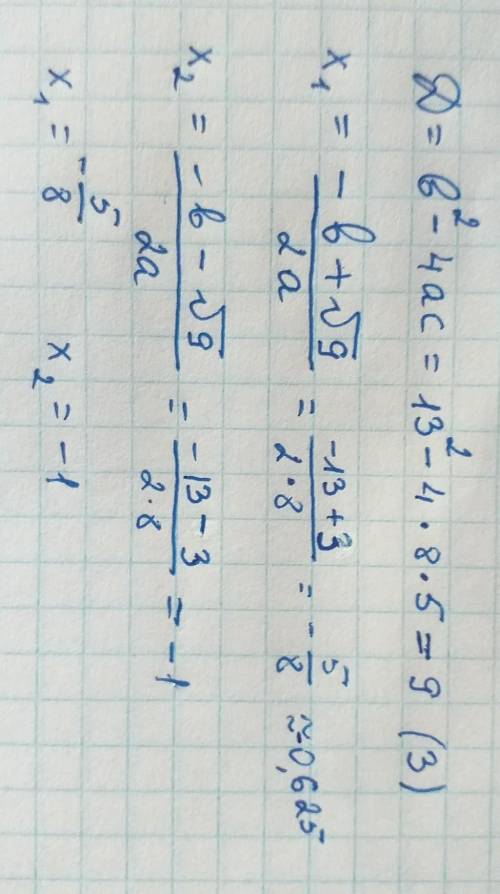 D = b² - 4ac = 13² - 4 · 8 · 5 = 9 (3)
x₁ = (-b + √9)/(2a) = (-13 + 3)/(2 · 8) = -5/8 ≈ -0,625
x₂ = (-b - √9)/(2a) = (-13 - 3)/(2 · 8) = -1
x₁ = -5/8 x₂ = -1